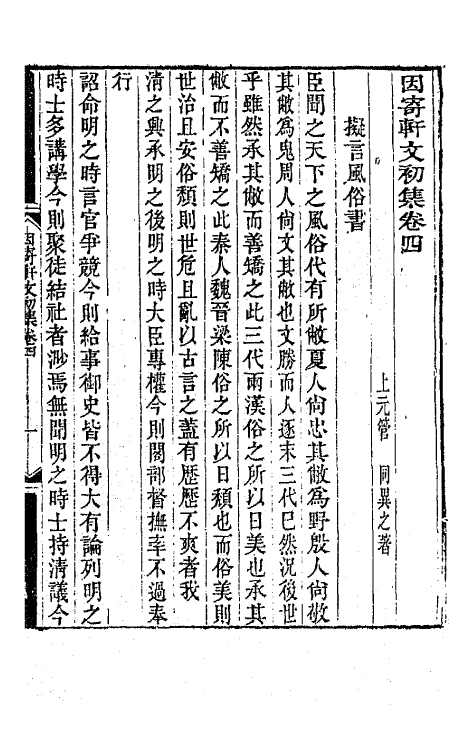 因寄軒文初集卷四
上元管　同異之著
擬言風俗書
臣聞之天下之風俗代有所敝夏人尙忠其敝爲野殷人尙敬
其敝爲鬼周人尙文其敝也文勝而人逐末三代已然況後世
乎雖然承其敝而善矯之此三代兩漢俗之所以日美也承其
敝而不善矯之此秦人魏晉梁陳俗之所以日頹也而俗美則
世治且安俗頹則世危且亂以古言之蓋有歷歷不爽者我
淸之興承明之後明之時大臣專權今則閣部督撫率不過奉
行
詔命明之時言官爭競今則給事御史皆不得大有論列明之
時士多講學今則聚徒結社者渺焉無聞明之時士持淸議今
因寄軒文初集卷四
一